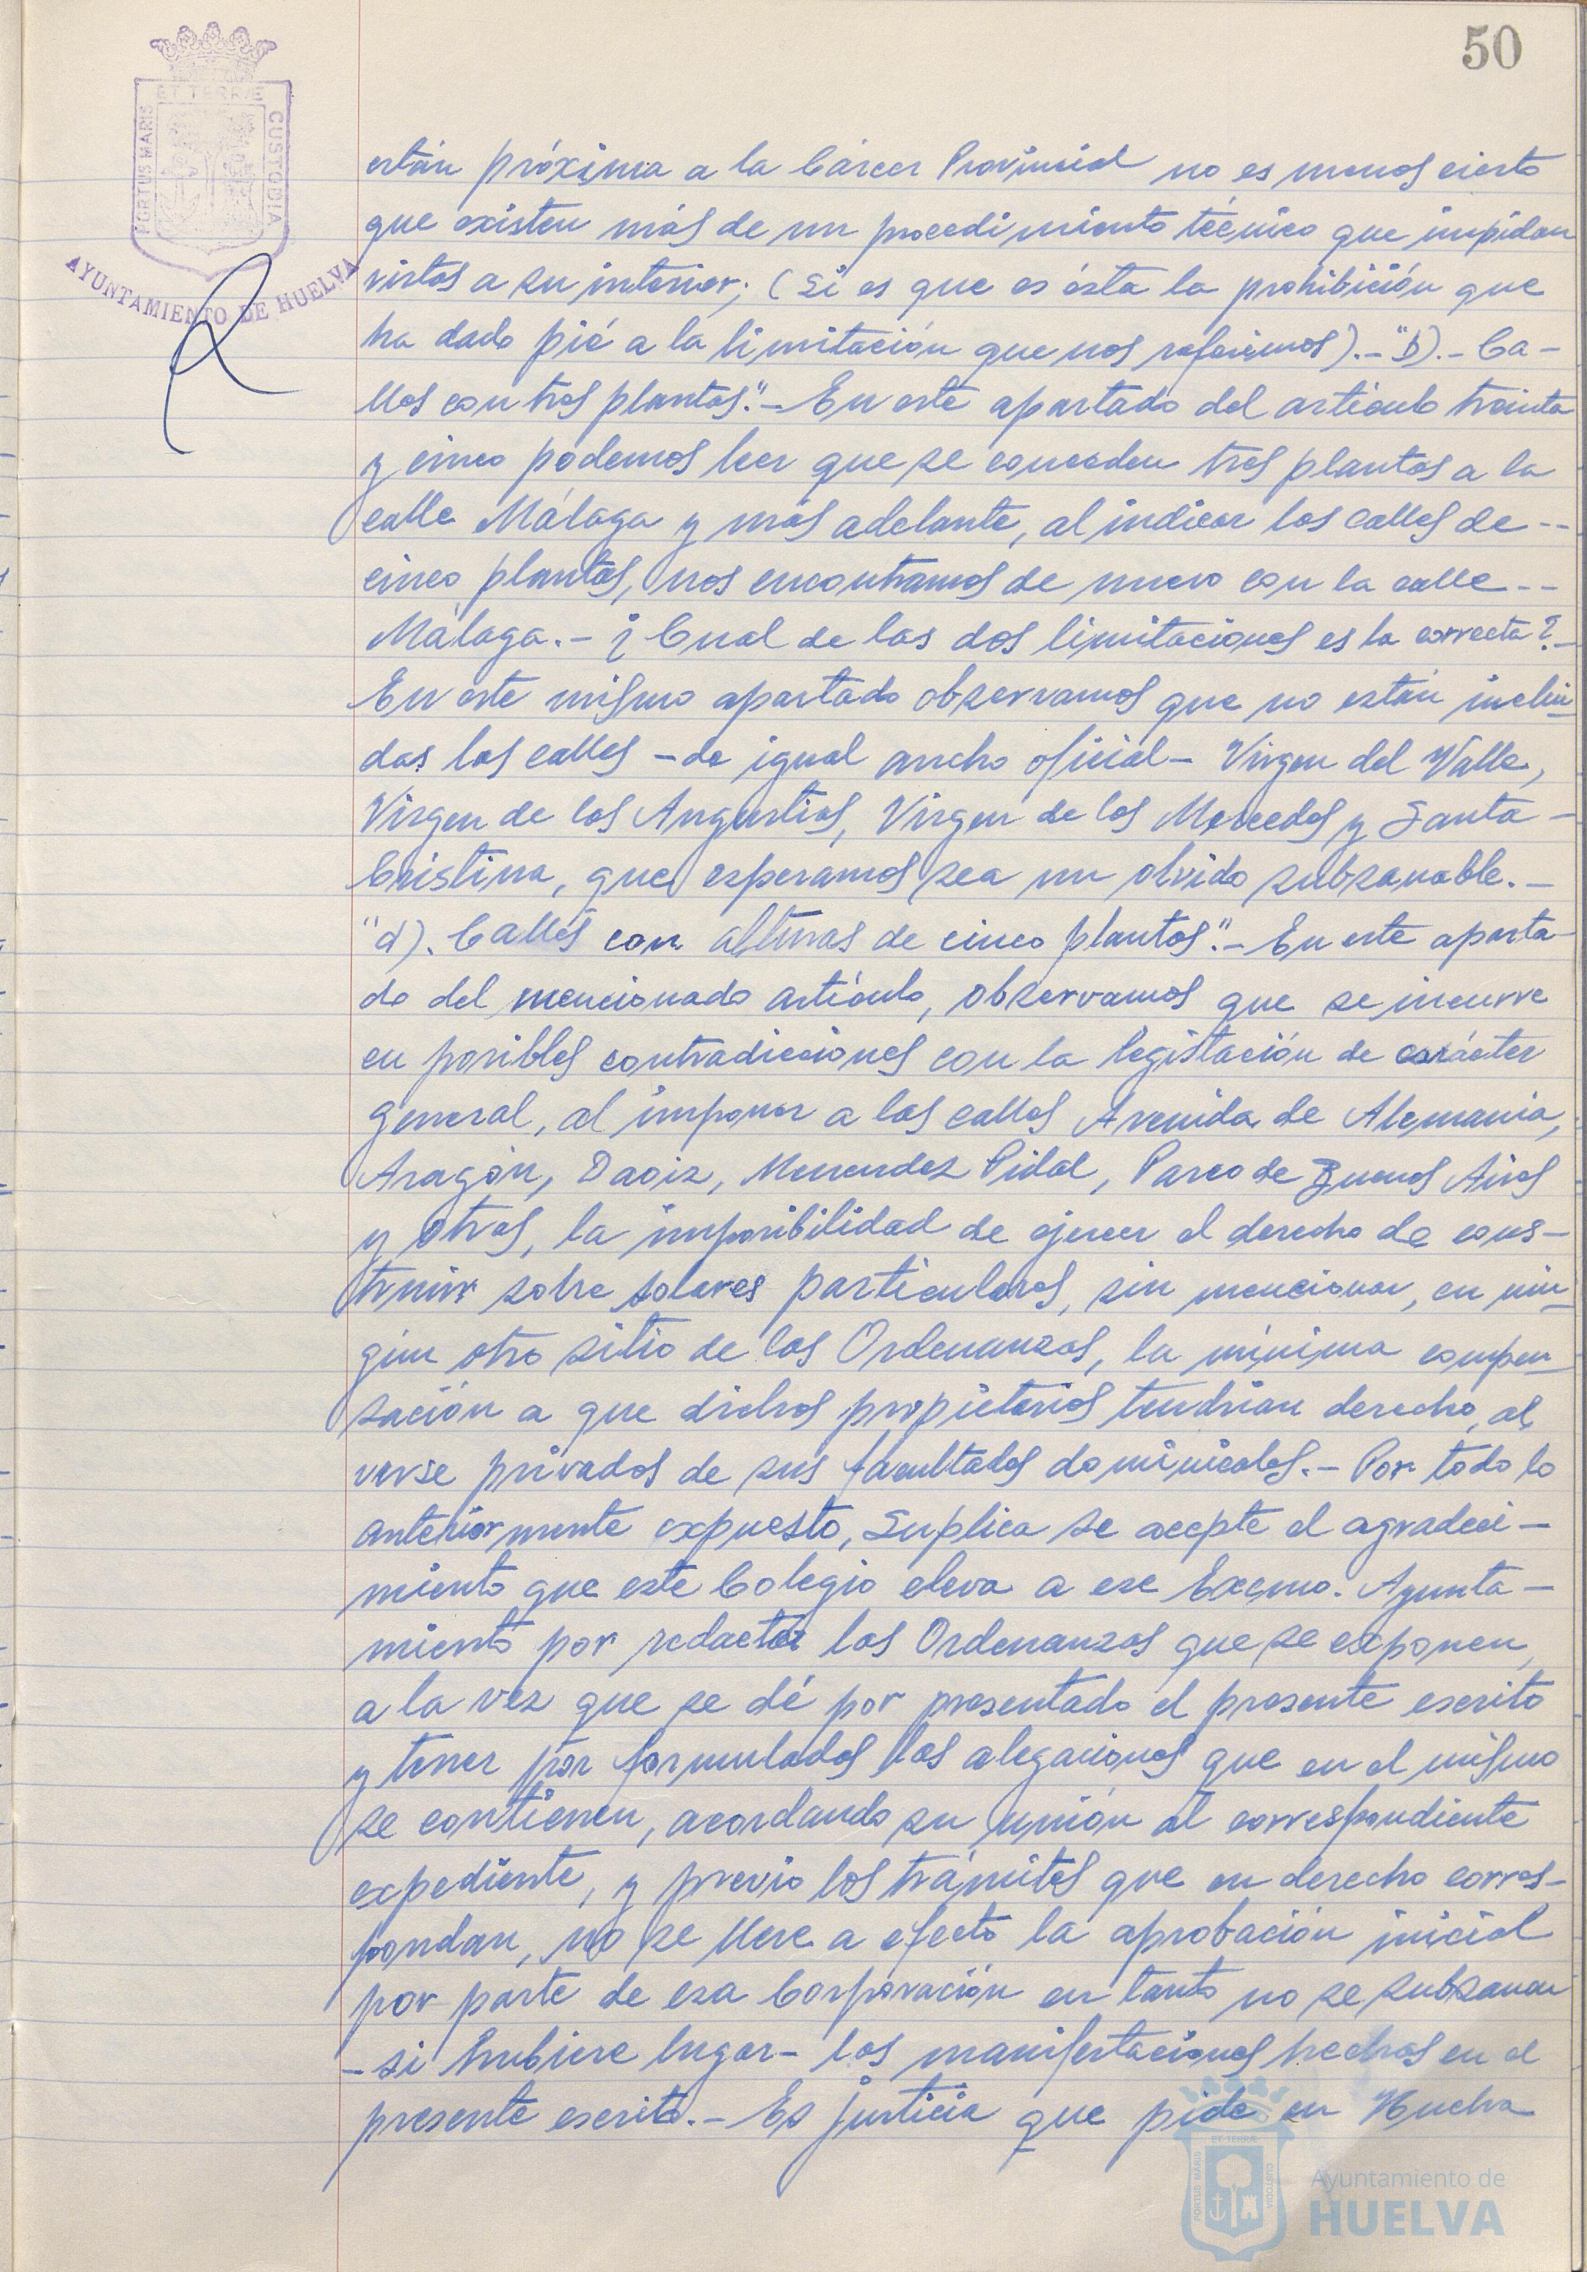 50
ET TERRÆ
PORTUS MARIS
CUSTODIA
AYUNTAMIENTO DE HUELVA
están próxima a la Cárcer Provincial no es menos cierto
que existen más de un procedimiento técnico que impidan
vistas a su interior; (Si es que es ésta la prohibición que
ha dado pié a la limitación que nos referimos).- "b).- Ca-
lles con tres plantas".- En este apartado del artículo treinta
y cinco podemos leer que se conceden tres plantas a la
calle Málaga y más adelante, al indicar las calles de --
cinco plantas, nos encontramos de nuevo con la calle --
Málaga.- ¿Cual de las dos limitaciones es la correcta?.-
En este mismo apartado observamos que no están inclui-
das las calles -de igual ancho oficial- Virgen del Valle,
Virgen de las Angustias, Virgen de las Mercedes y Santa -
Cristina, que esperamos sea un olvido subsanable.-
"d). Calles con alturas de cinco plantas".- En este aparta-
do del mencionado artículo, observamos que se incurre
en posibles contradicciones con la legislación de carácter
general, al imponer a las calles Avenida de Alemania,
Aragón, Daoiz, Menendez Pidal, Paseo de Buenos Aires
y otras, la imposibilidad de ejercer el derecho de cons-
truir sobre solares particulares, sin mencionar, en nin-
gún otro sitio de las Ordenanzas, la mínima compen-
sación a que dichos propietarios tendrian derecho, al
verse privados de sus facultades dominicales.- Por todo lo
anteriormente expuesto, Suplica se acepte el agradeci-
miento que este Colegio eleva a ese Excmo. Ayunta-
miento por redactar las Ordenanzas que se exponen,
a la vez que se dé por presentado el presente escrito
y tener por formuladas las alegaciones que en el mismo
se contienen, acordando su unión al correspondiente
expediente, y previo los trámites que en derecho corres-
pondan, no se lleve a efecto la aprobación inicial
por parte de esa Corporación en tanto no se subsanan
-si hubiere lugar- las manifestaciones hechas en el
presente escrito.- Es justicia que pide en Huelva
ET TERRÆ
PORTUS MARIS
CUSTODIA
Ayuntamiento de
HUELVA